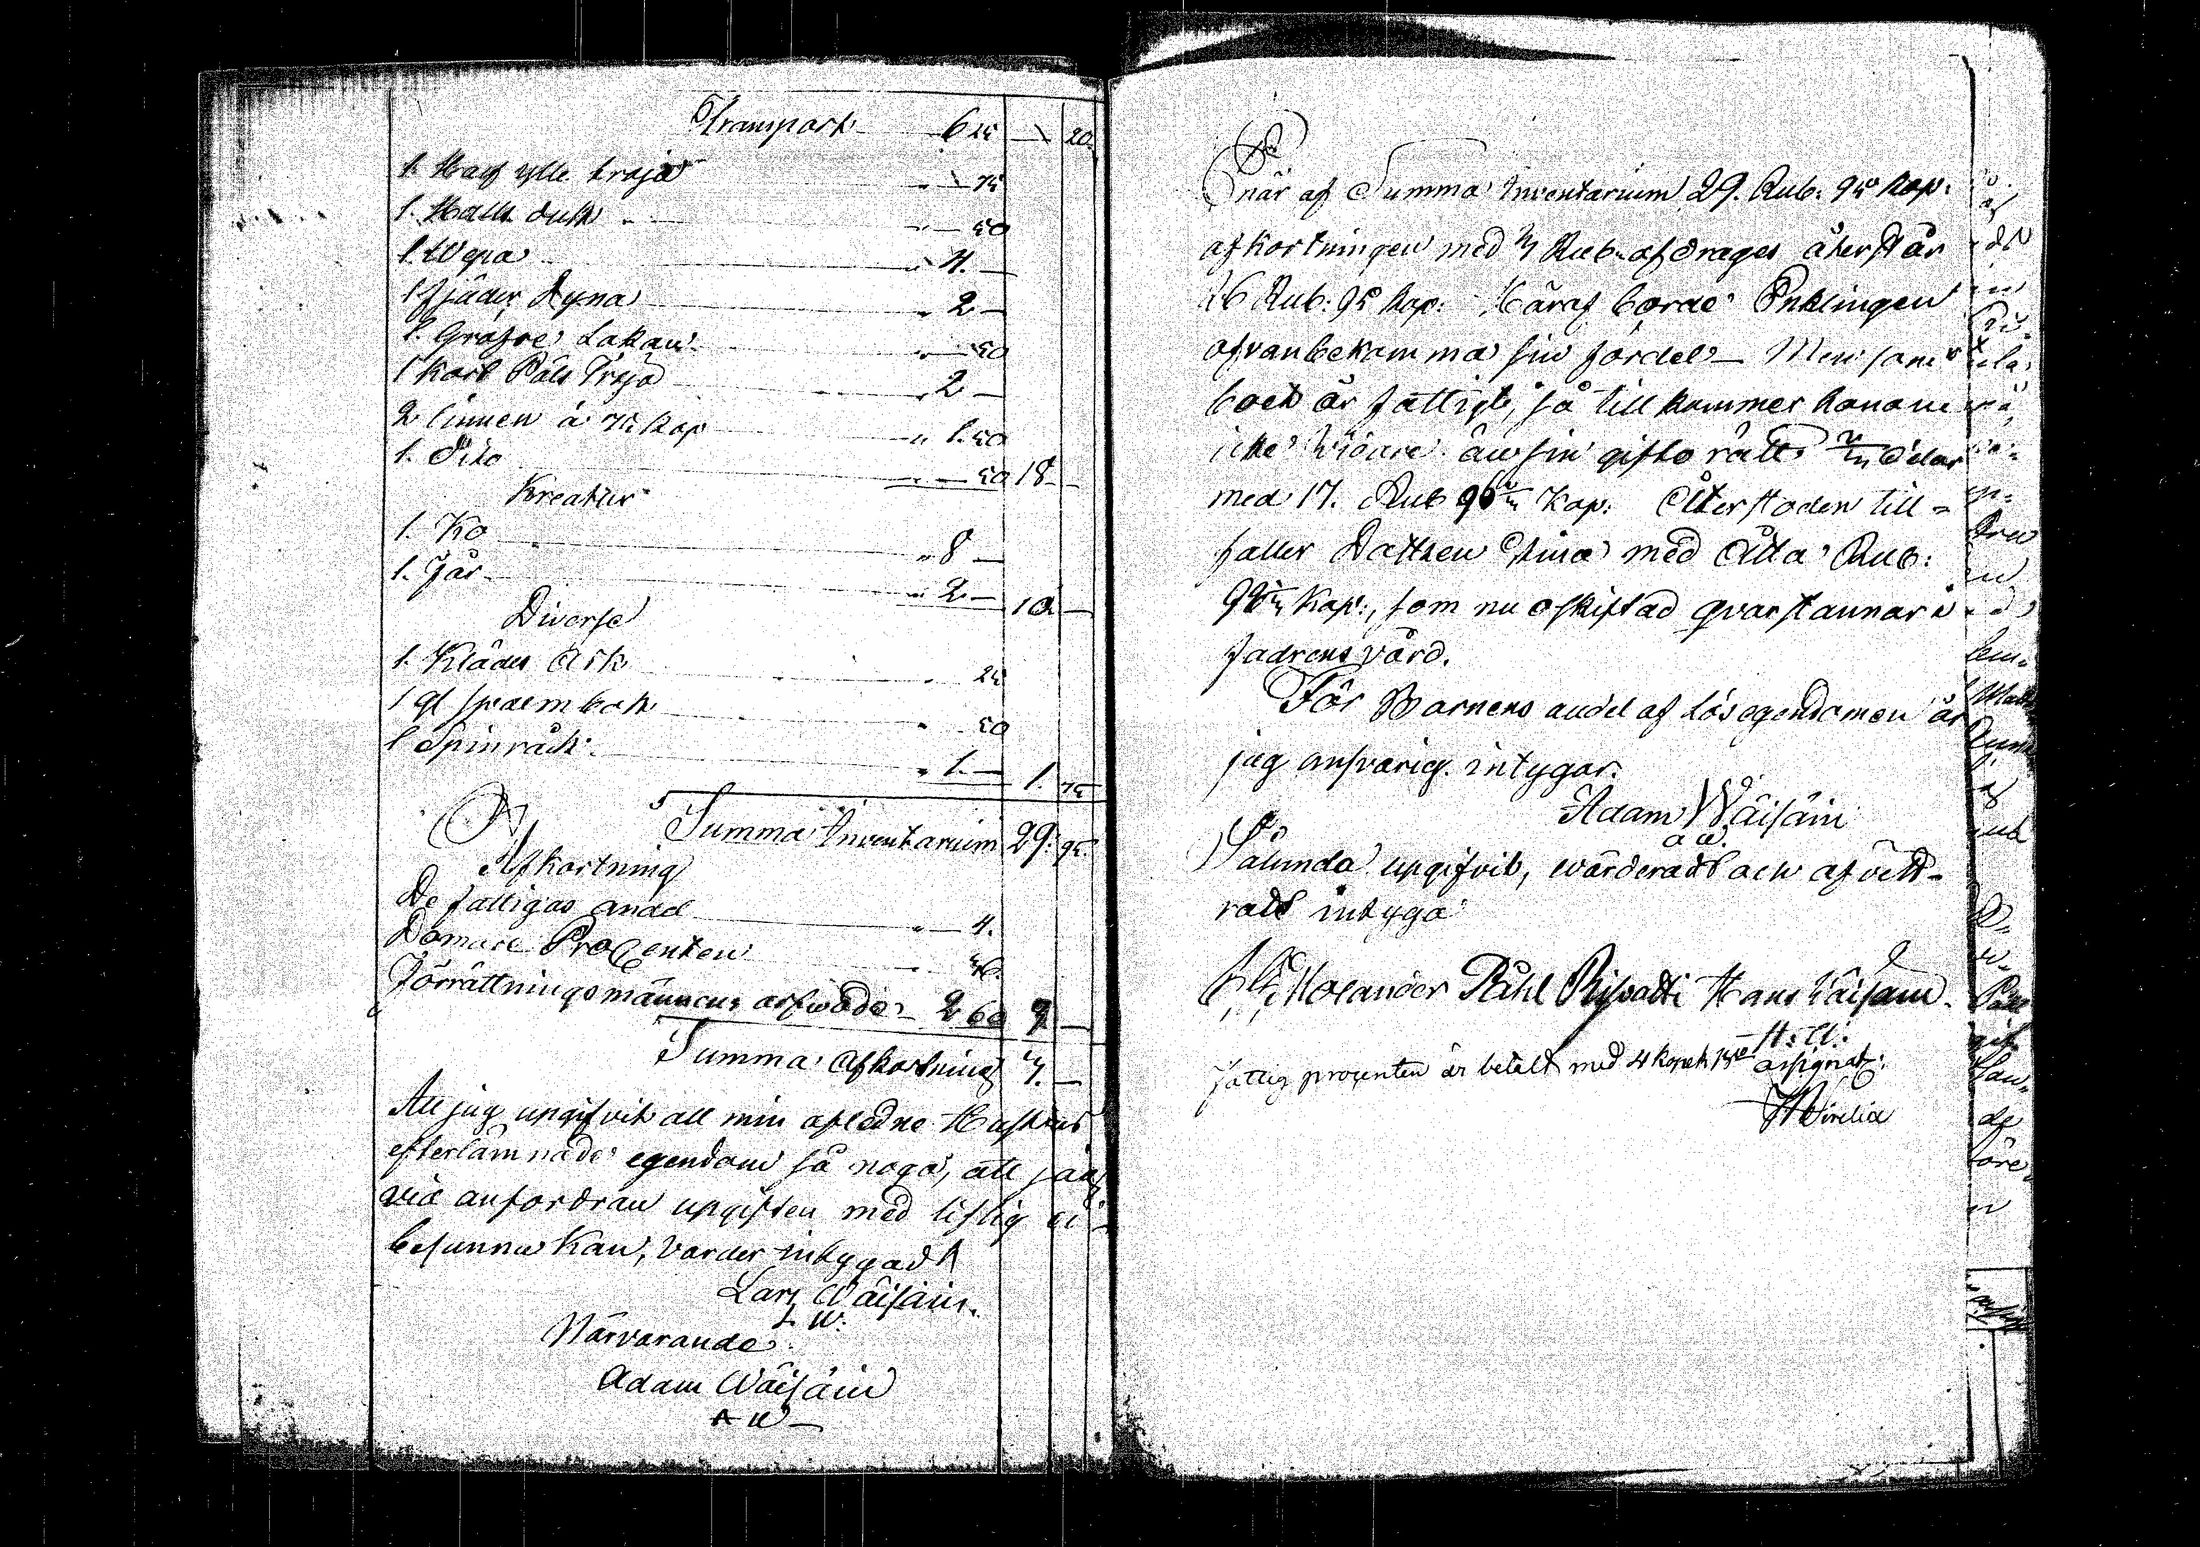 Transport 6 25 — 20
1. Half ylle tröja " — 75
1. Hals duk " — 50
1. Wepa " 4. —
1 fjäder Dyna " 2 —
1. Gröfre Lakan " — 50
1 kort Päls Tröja " 2 —
2 linnen à 75 kop " 1. 50
1. Dito " — 50 18 —
Kreatur
1. Ko " 8 —
1. Får " 2 — 10 —
Diverse
1. Kläder Ask " 25
1 gl psalmbok " 50
1 Spinråck " 1. — 1. 75
Summa Inventarium 29. 95.
Afkortning
De fattigas andel " — 4.
Domare Procenten
Förrättningsmännens arfwode 2 60
Summa Afkortning —
At jag upgifvit all min afledne Hustrus
efterlämnade egendom så noga, att jag
vid anfordran upgiften med liflig ed
besanna kan, varder intygadt
Lars Wäisäin.
L W.
Närvarande
Adam Wäisäin
A W —
När af Summa Inventarium 29. Rub: 95 kop:
afkortningen med 3 Rub. afdrages återstår
26 Rub: 95 kop: Häraf borde Enklingen
ofvanbekomma sin fördel — Men som
boet är fattigt, så tillkommer honom
icke vidare än sin gifto rätt 2/3 delar
med 17. Rub kop: Återstoden till-
faller Dottren Stina med Åtta Rub:
kop:, som nu oskiftad qvarstannar i
fadrens vård.
För Barnens andel af lösegendomen är
jag ansvarig. intygar.
Adam Wäisäin
A W.
Sålunda upgifvit, wärderadt och afvitt-
radt intyga
Molander Påhl Hans Wäisäin.
H. W.
fattig procenten är betalt med 4 kopek assignat: